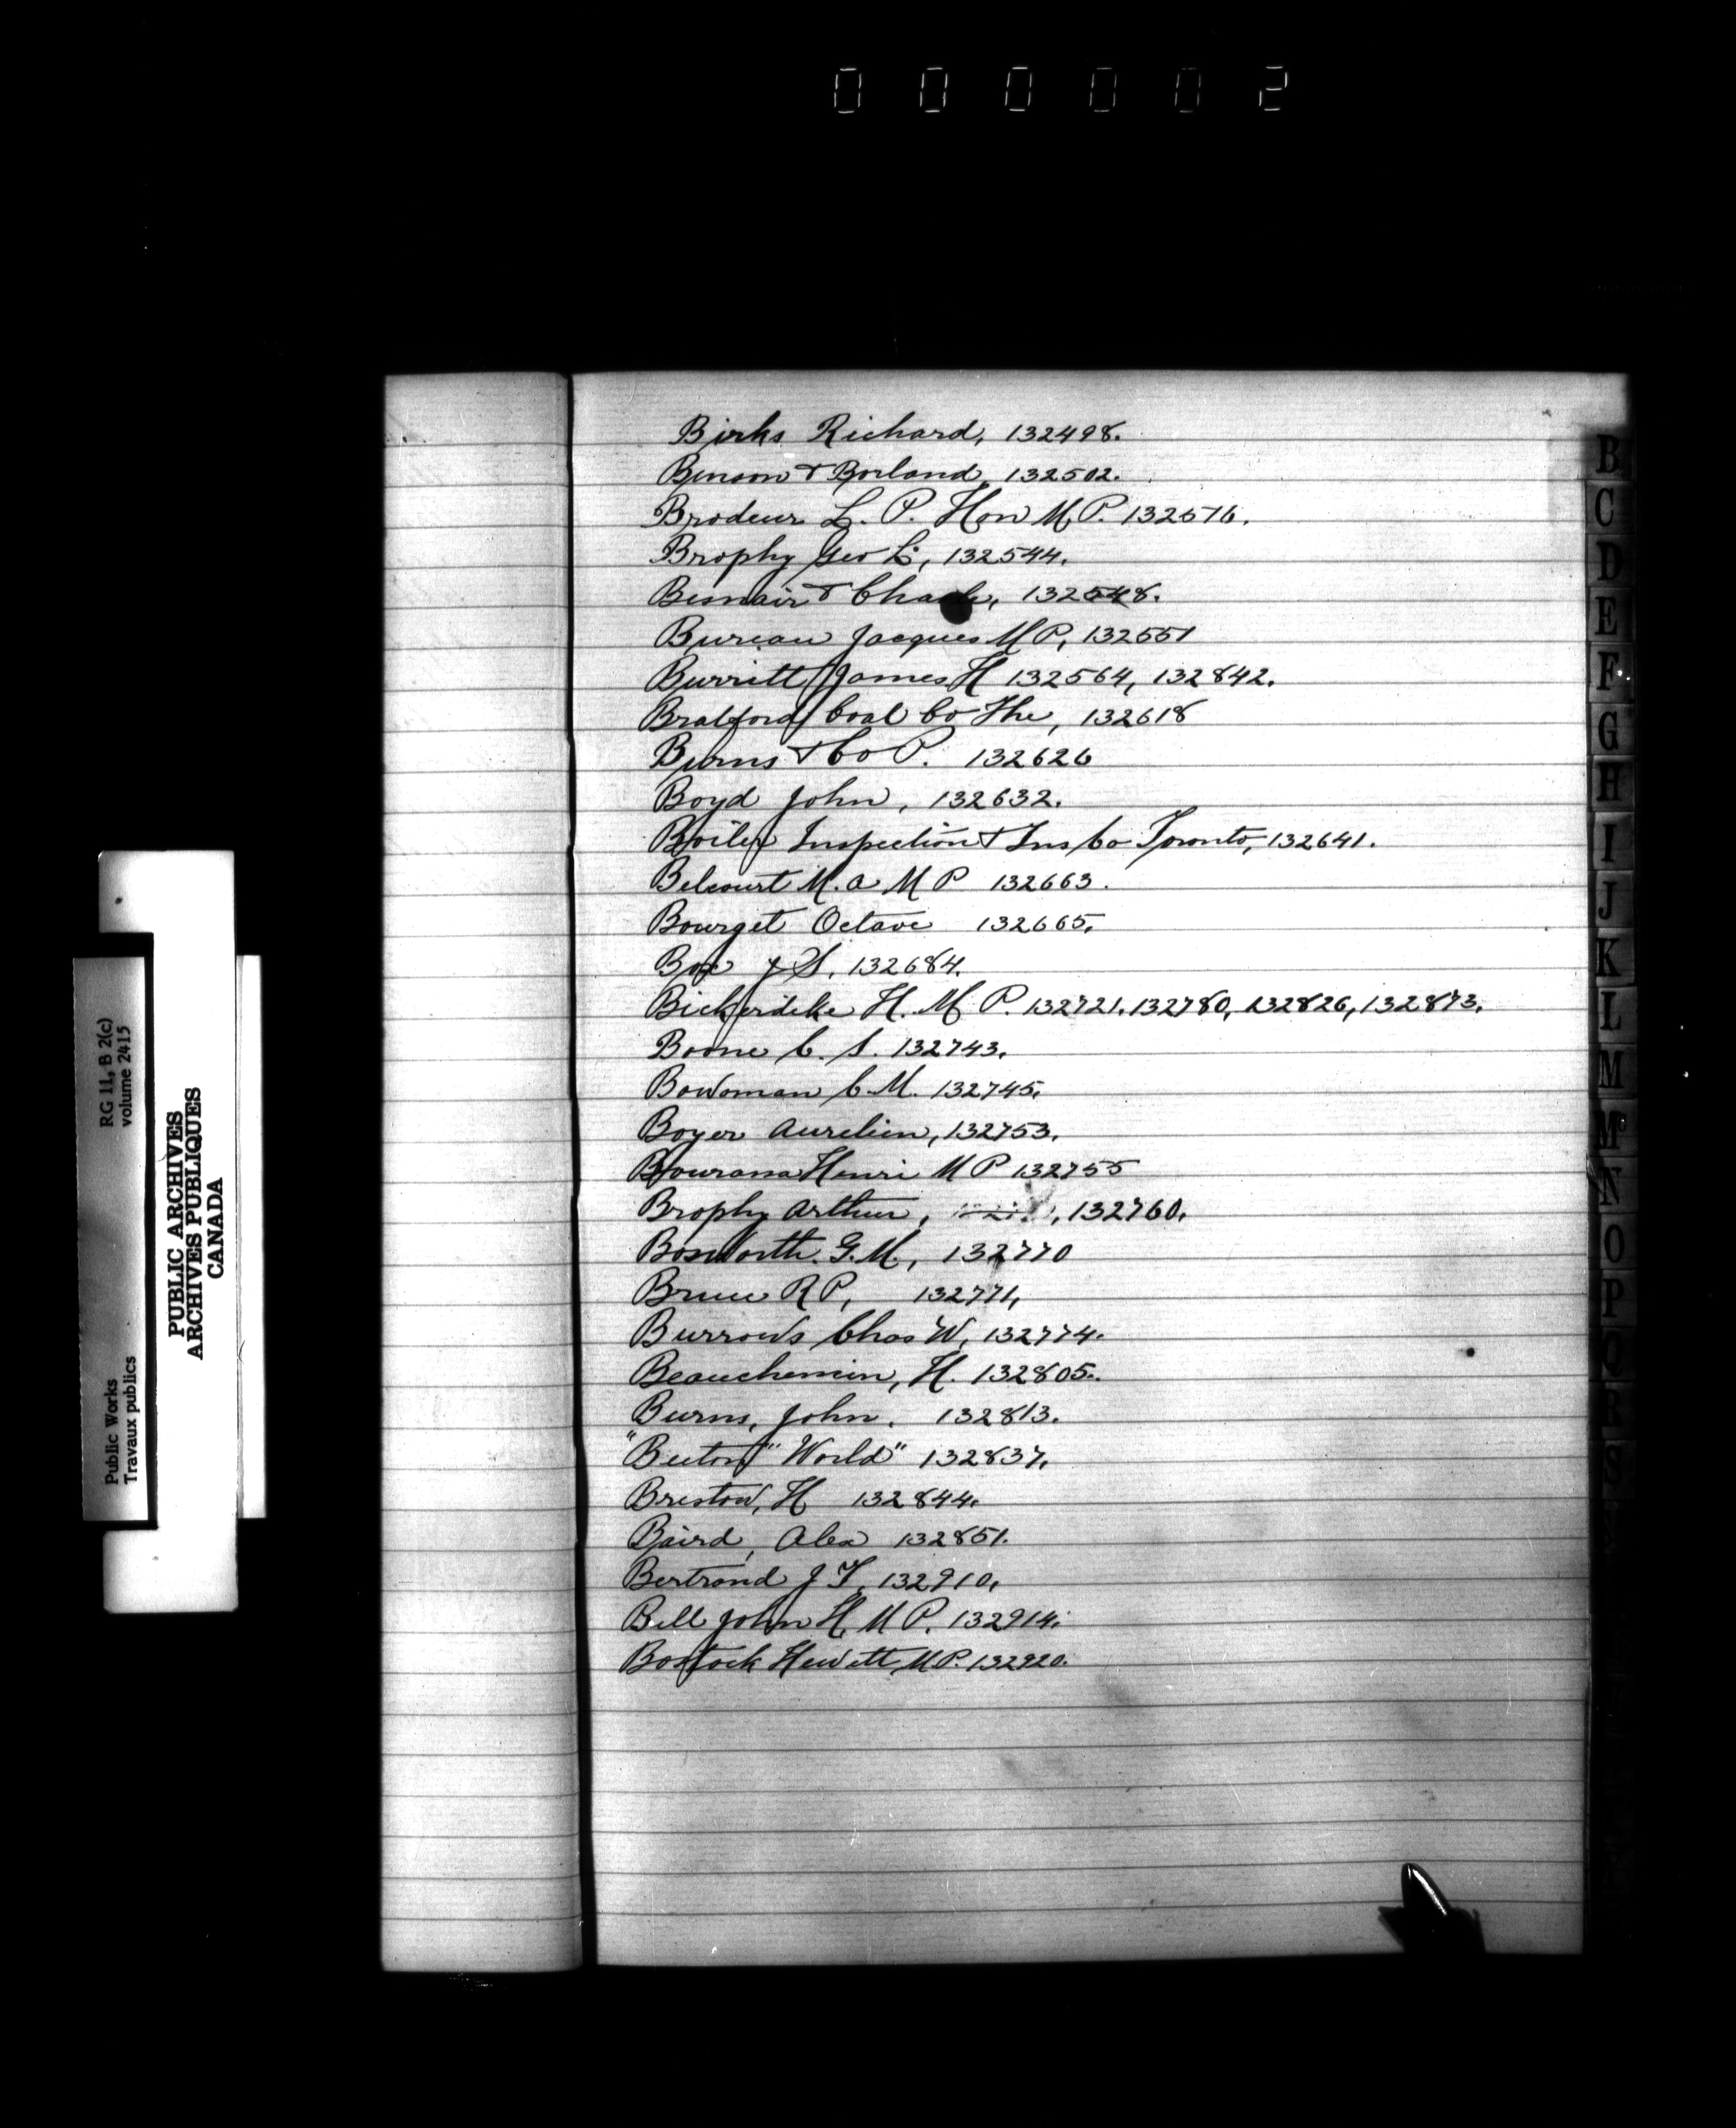 000002
Birks Richard, 132498.
Benson & Borland, 132502.
Brodeur L. P. Hon M.P. 132516.
Brophy Geo L, 132544.
132548.
Bureau Jacques M P, 132551
Burritt James H 132564, 132842.
Bradford Coal Co The, 132618
Burns & Co P. 132626
Boyd John, 132632.
Boiler Inspection & Ins Co Toronto, 132641.
Belcourt N. A M P 132663.
Bourget Octave 132665.
Box J S. 132684.
Bickerdike H. M P. 132721, 132780, 132826, 132873.
Boone C. S. 132743.
Bowoman C. M. 132745.
Boyer Aurelien, 132753.
Bourassa Henri M P 132755
Brophy Arthur, 132760.
Bosworth G. M, 132770
Bruce R P, 132771,
Burrows Chas W, 132774.
Beauchemin, H. 132805.
Burns, John. 132813.
"Beeton" "World" 132837.
Brestow, H 132844.
Baird, Alex 132851.
Bertrand J T, 132910,
Bell John H, M P. 132914.
Bostock Hewitt, M.P. 132920.
B
C
D
E
F
G
H
I
J
K
L
M
Mc
N
O
P
Q
R
S
RG 11, B 2(c)
volume 2415
Public Works
Travaux publics
PUBLIC ARCHIVES
ARCHIVES PUBLIQUES
CANADA